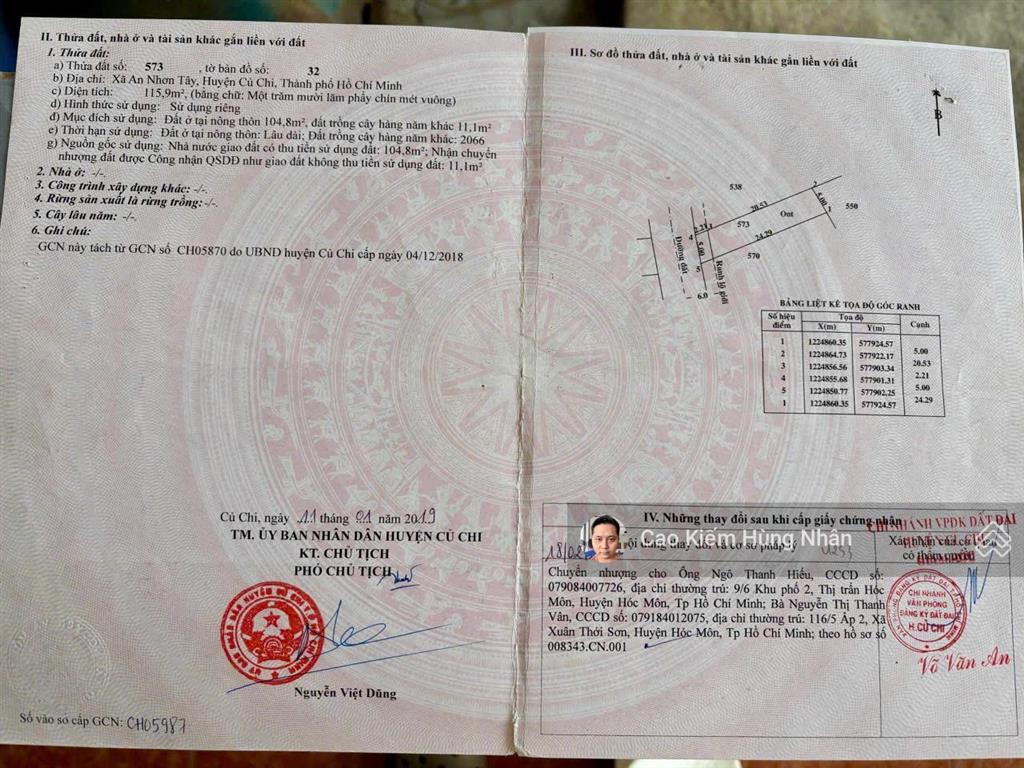 II. Thửa đất, nhà ở và tài sản khác gắn liền với đất
1. Thửa đất:
a) Thửa đất số: 573 , tờ bản đồ số: 32
b) Địa chỉ: Xã An Nhơn Tây, Huyện Củ Chi, Thành phố Hồ Chí Minh
c) Diện tích: 115,9m², (bằng chữ: Một trăm mười lăm phẩy chín mét vuông)
d) Hình thức sử dụng: Sử dụng riêng
đ) Mục đích sử dụng: Đất ở tại nông thôn 104,8m², đất trồng cây hàng năm khác 11,1m²
e) Thời hạn sử dụng: Đất ở tại nông thôn: Lâu dài; Đất trồng cây hàng năm khác: 2066
g) Nguồn gốc sử dụng: Nhà nước giao đất có thu tiền sử dụng đất: 104,8m²; Nhận chuyển
nhượng đất được Công nhận QSDĐ như giao đất không thu tiền sử dụng đất: 11,1m²
2. Nhà ở: -/-.
3. Công trình xây dựng khác: -/-.
4. Rừng sản xuất là rừng trồng: -/-.
5. Cây lâu năm: -/-.
6. Ghi chú:
GCN này tách từ GCN số CH05870 do UBND huyện Củ Chi cấp ngày 04/12/2018
Củ Chi, ngày 11 tháng 01 năm 2019
TM. ỦY BAN NHÂN DÂN HUYỆN CỦ CHI
KT. CHỦ TỊCH
PHÓ CHỦ TỊCH
Nguyễn Việt Dũng
Số vào sổ cấp GCN: CH05987
III. Sơ đồ thửa đất, nhà ở và tài sản khác gắn liền với đất
B
538
2
20.53
5.00
Ont
550
573
2.21
4
5.00
24.29
570
5
6.0
Đường đất
Ranh lộ giới
BẢNG LIỆT KÊ TỌA ĐỘ GÓC RANH
Số hiệu điểm Tọa độ Cạnh
X(m) Y(m)
1 1224860.35 577924.57
5.00
2 1224864.73 577922.17
20.53
3 1224856.56 577903.34
2.21
4 1224855.68 577901.31
5.00
5 1224850.77 577902.25
24.29
1 1224860.35 577924.57
IV. Những thay đổi sau khi cấp giấy chứng nhận
Cao Kiếm Hùng Nhân
CHI NHÁNH VPĐK ĐẤT ĐAI
Nội dung thay đổi và cơ sở pháp lý
Xác nhận của cơ quan
có thẩm quyền
Chuyển nhượng cho Ông Ngô Thanh Hiếu, CCCD số:
079084007726, địa chỉ thường trú: 9/6 Khu phố 2, Thị trấn Hóc
Môn, Huyện Hóc Môn, Tp Hồ Chí Minh; Bà Nguyễn Thị Thanh
Vân, CCCD số: 079184012075, địa chỉ thường trú: 116/5 Ấp 2, Xã
Xuân Thới Sơn, Huyện Hóc Môn, Tp Hồ Chí Minh; theo hồ sơ số
008343.CN.001
CHI NHÁNH
VĂN PHÒNG
ĐĂNG KÝ ĐẤT ĐAI
H. CỦ CHI
Võ Văn An